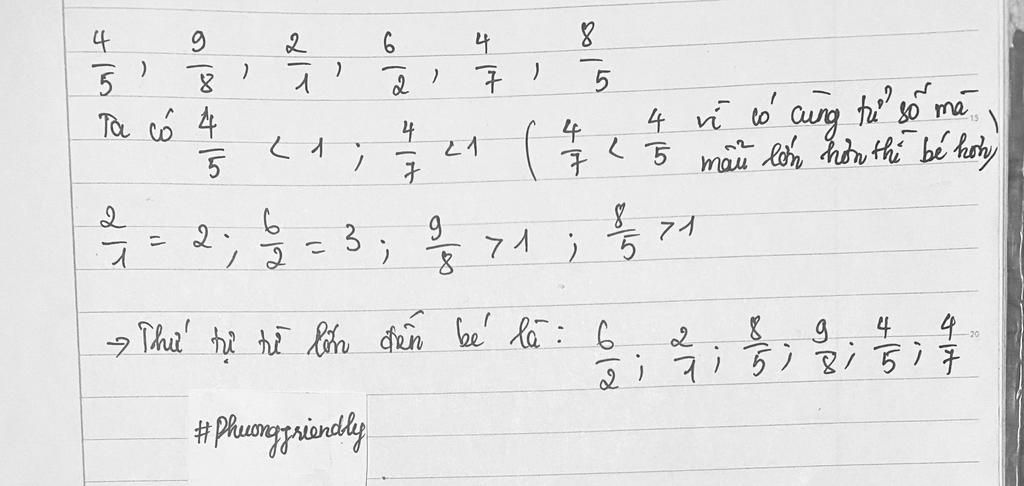 4/5, 9/8, 2/1, 6/2, 4/7, 8/5
Ta có 4/5 < 1 ; 4/7 < 1 ( 4/7 < 4/5 vì có cùng tử số mà
mẫu lớn hơn thì bé hơn)
2/1 = 2 ; 6/2 = 3 ; 9/8 > 1 ; 8/5 > 1
→ Thứ tự từ lớn đến bé là: 6/2 ; 2/1 ; 8/5 ; 9/8 ; 4/5 ; 4/7
#Phuongfriendly